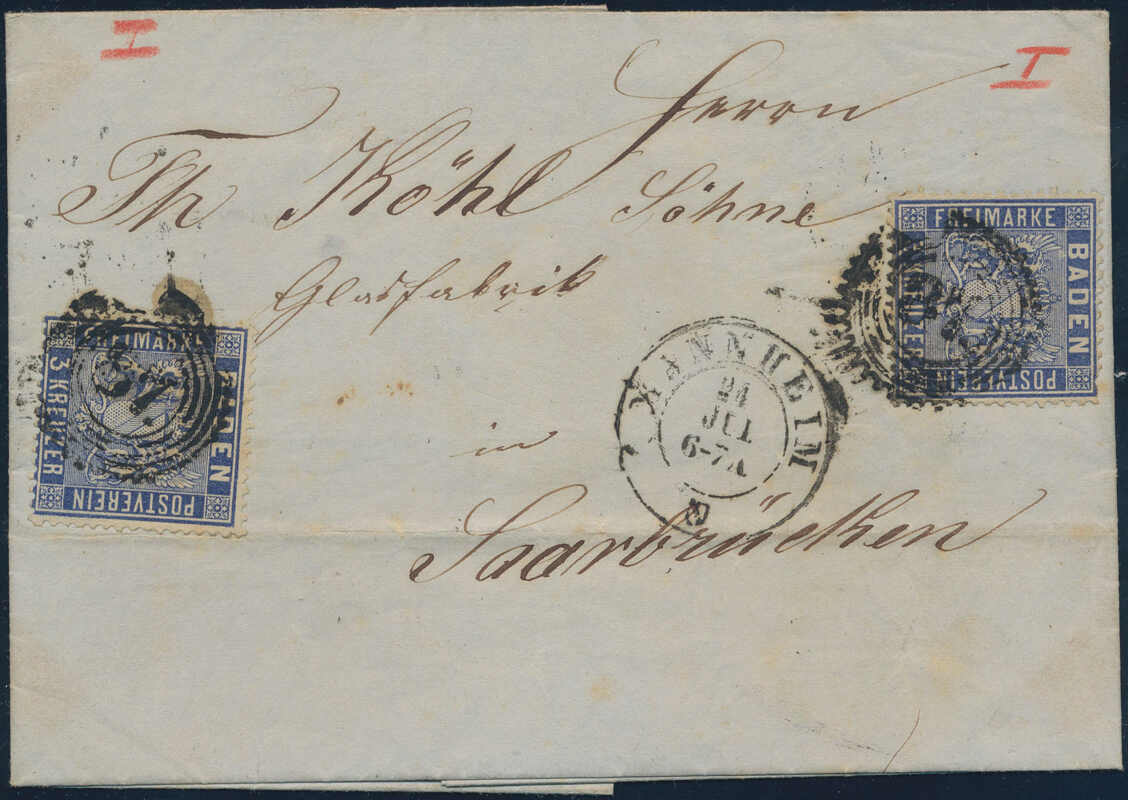 I
I
Herrn
Th Köhl Söhne
Glasfabrik
in
Saarbrücken
FREIMARKE
BADEN
POSTVEREIN
3 KREUZER
87
FREIMARKE
BADEN
POSTVEREIN
KREUZER
MANNHEIM
24
JUL
6-7A